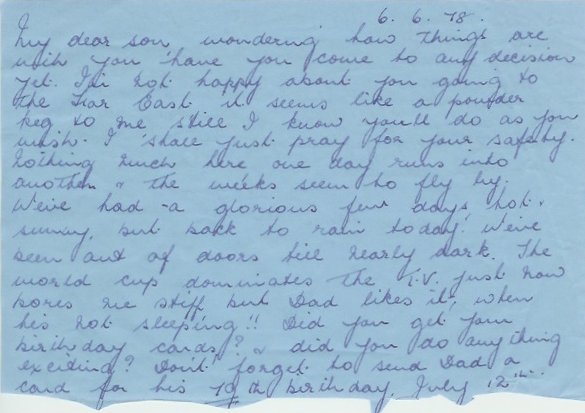 6. 6. 78.
My dear son, wondering how things are
with you have you come to any decision
yet. I'm not happy about you going to
the Far East it seems like a powder
keg to me still I know you'll do as you
wish. I shall just pray for your safety.
Nothing much here one day runs into
another & the weeks seem to fly by.
We've had a glorious few days hot &
sunny, but back to rain today. We've
been out of doors till nearly dark. The
world cup dominates the T.V. just now
bores me stiff but Dad likes it, when
his not sleeping!! Did you get your
birthday cards? & did you do anything
exciting? Don't forget to send Dad a
card for his 70th birthday July 12th.